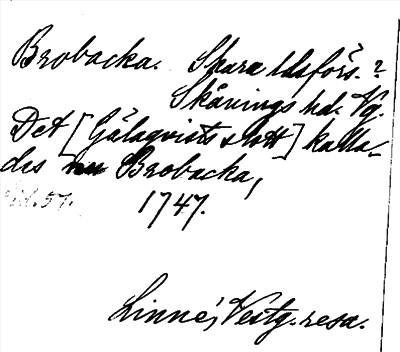 Brobacka. Skara ldsförs.?
Skånings hd. Vg.
Det [Gälaqvists slott] kalla-
des nu Brobacka,
sid. 57. 1747.
Linné, Vestg. resa.